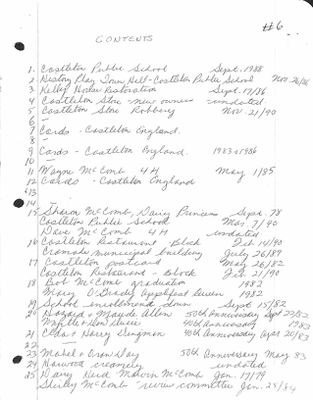 #6
CONTENTS
1. Castleton Public School Sept. 1988
2 History Play Town Hall - Castleton Public School Nov. 26/86
3 Kelly House Restoration Sept. 17/86
4 Castleton Store - new owner - undated
5 Castleton Store Robbery Nov. 21/90
6 -
7 Cards - Castleton England.
8 -
9 Cards - Castleton England. 1983 & 1986
10 -
11 Wayne McComb 4H May 1/85
12 Cards - Castleton England
13
14
15 Sharon McComb, Dairy Princess Sept. 78
Castleton Public School Mar. 7/90
Dave McComb 4H undated
16 Castleton Restaurant - Block Feb 14/90
Cramahe municipal building July 26/89
17 Castleton postcard May 26/82
Castleton Restaurant - Block Feb. 21/90
18 Bob McComb graduation 1982
Mary O'Grady Applefest Queen 1982
19 School enrollment down Sept 15/82
20 Howard & Maude Allen 50th Anniversary Sept 22/82
40th Anniversary 1983
21 Clara & Harry Clugman 40th Anniversary Sept 20/83
22
23 Mabel & Oren Day 50th Anniversary May 83
24 Harwood creamery undated
25 Dairy Herd Melvin McComb Jan 17/79
Shirley McComb - review committee Jan. 25/84